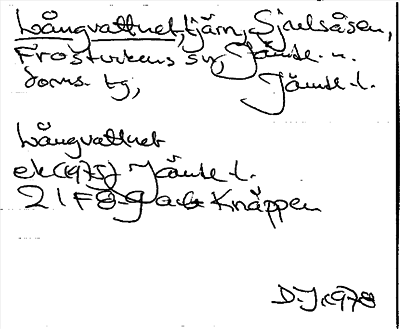 Långvattnet, tjärn, Sjulsåsen,
Frostvikens sn, Jämtl. n.
doms. tg, Jämtl. l.
Långvattnet
ek (1975) Jämtl. l.
21F Knäppen
D.J. 1978